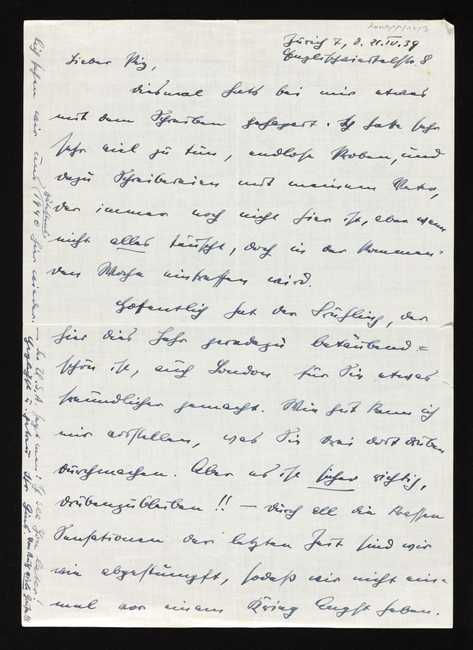 Zürich 7, d. 21.IV.39
Englischviertelstr. 8
Lieber Pig,
diesmal hats bei mir etwas
mit dem Schreiben gehapert. Ich habe sehr
sehr viel zu tun, endlose Proben, und
dazu Schreibereien mit meinem Vater,
der immer noch nicht hier ist, aber wenn
nicht alles täuscht, doch in der kommen-
den Woche eintreffen wird.
Hoffentlich hat der Frühling, der
hier dies Jahr geradezu betäubend =
schön ist, auch London für Sie etwas
freundlicher gemacht. Wie gut kann ich
mir vorstellen, was Sie dort drüben
durchmachen. Aber es ist sicher richtig,
drübenzubleiben!! – durch all die
Sensationen der letzten Zeit sind wir
wie abgestumpft, sodaß wir nicht ein-
mal vor einem Krieg Angst haben.
sehen wir uns 1940 hier wieder. – In U.S.A. sagt man: I see you later!